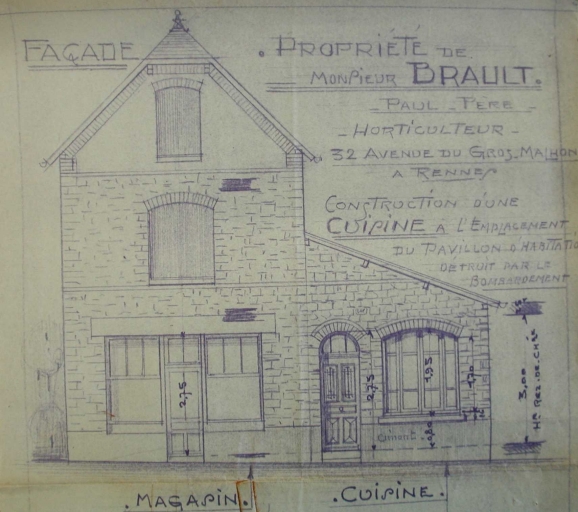 FAÇADE
. PROPRIÉTÉ DE
MONSIEUR BRAULT.
- PAUL - PÈRE -
- HORTICULTEUR -
32 AVENUE DU GROS-MALHON
A RENNES
CONSTRUCTION D'UNE
CUISINE à L'EMPLACEMENT
DU PAVILLON D'HABITATIO
DÉTRUIT PAR LE
BOMBARDEMENT
2,75
2,75
1,95
1,70
0,80
Ciment
3,00
Hr REZ.DE.CHée
. MAGASIN.
. CUISINE.